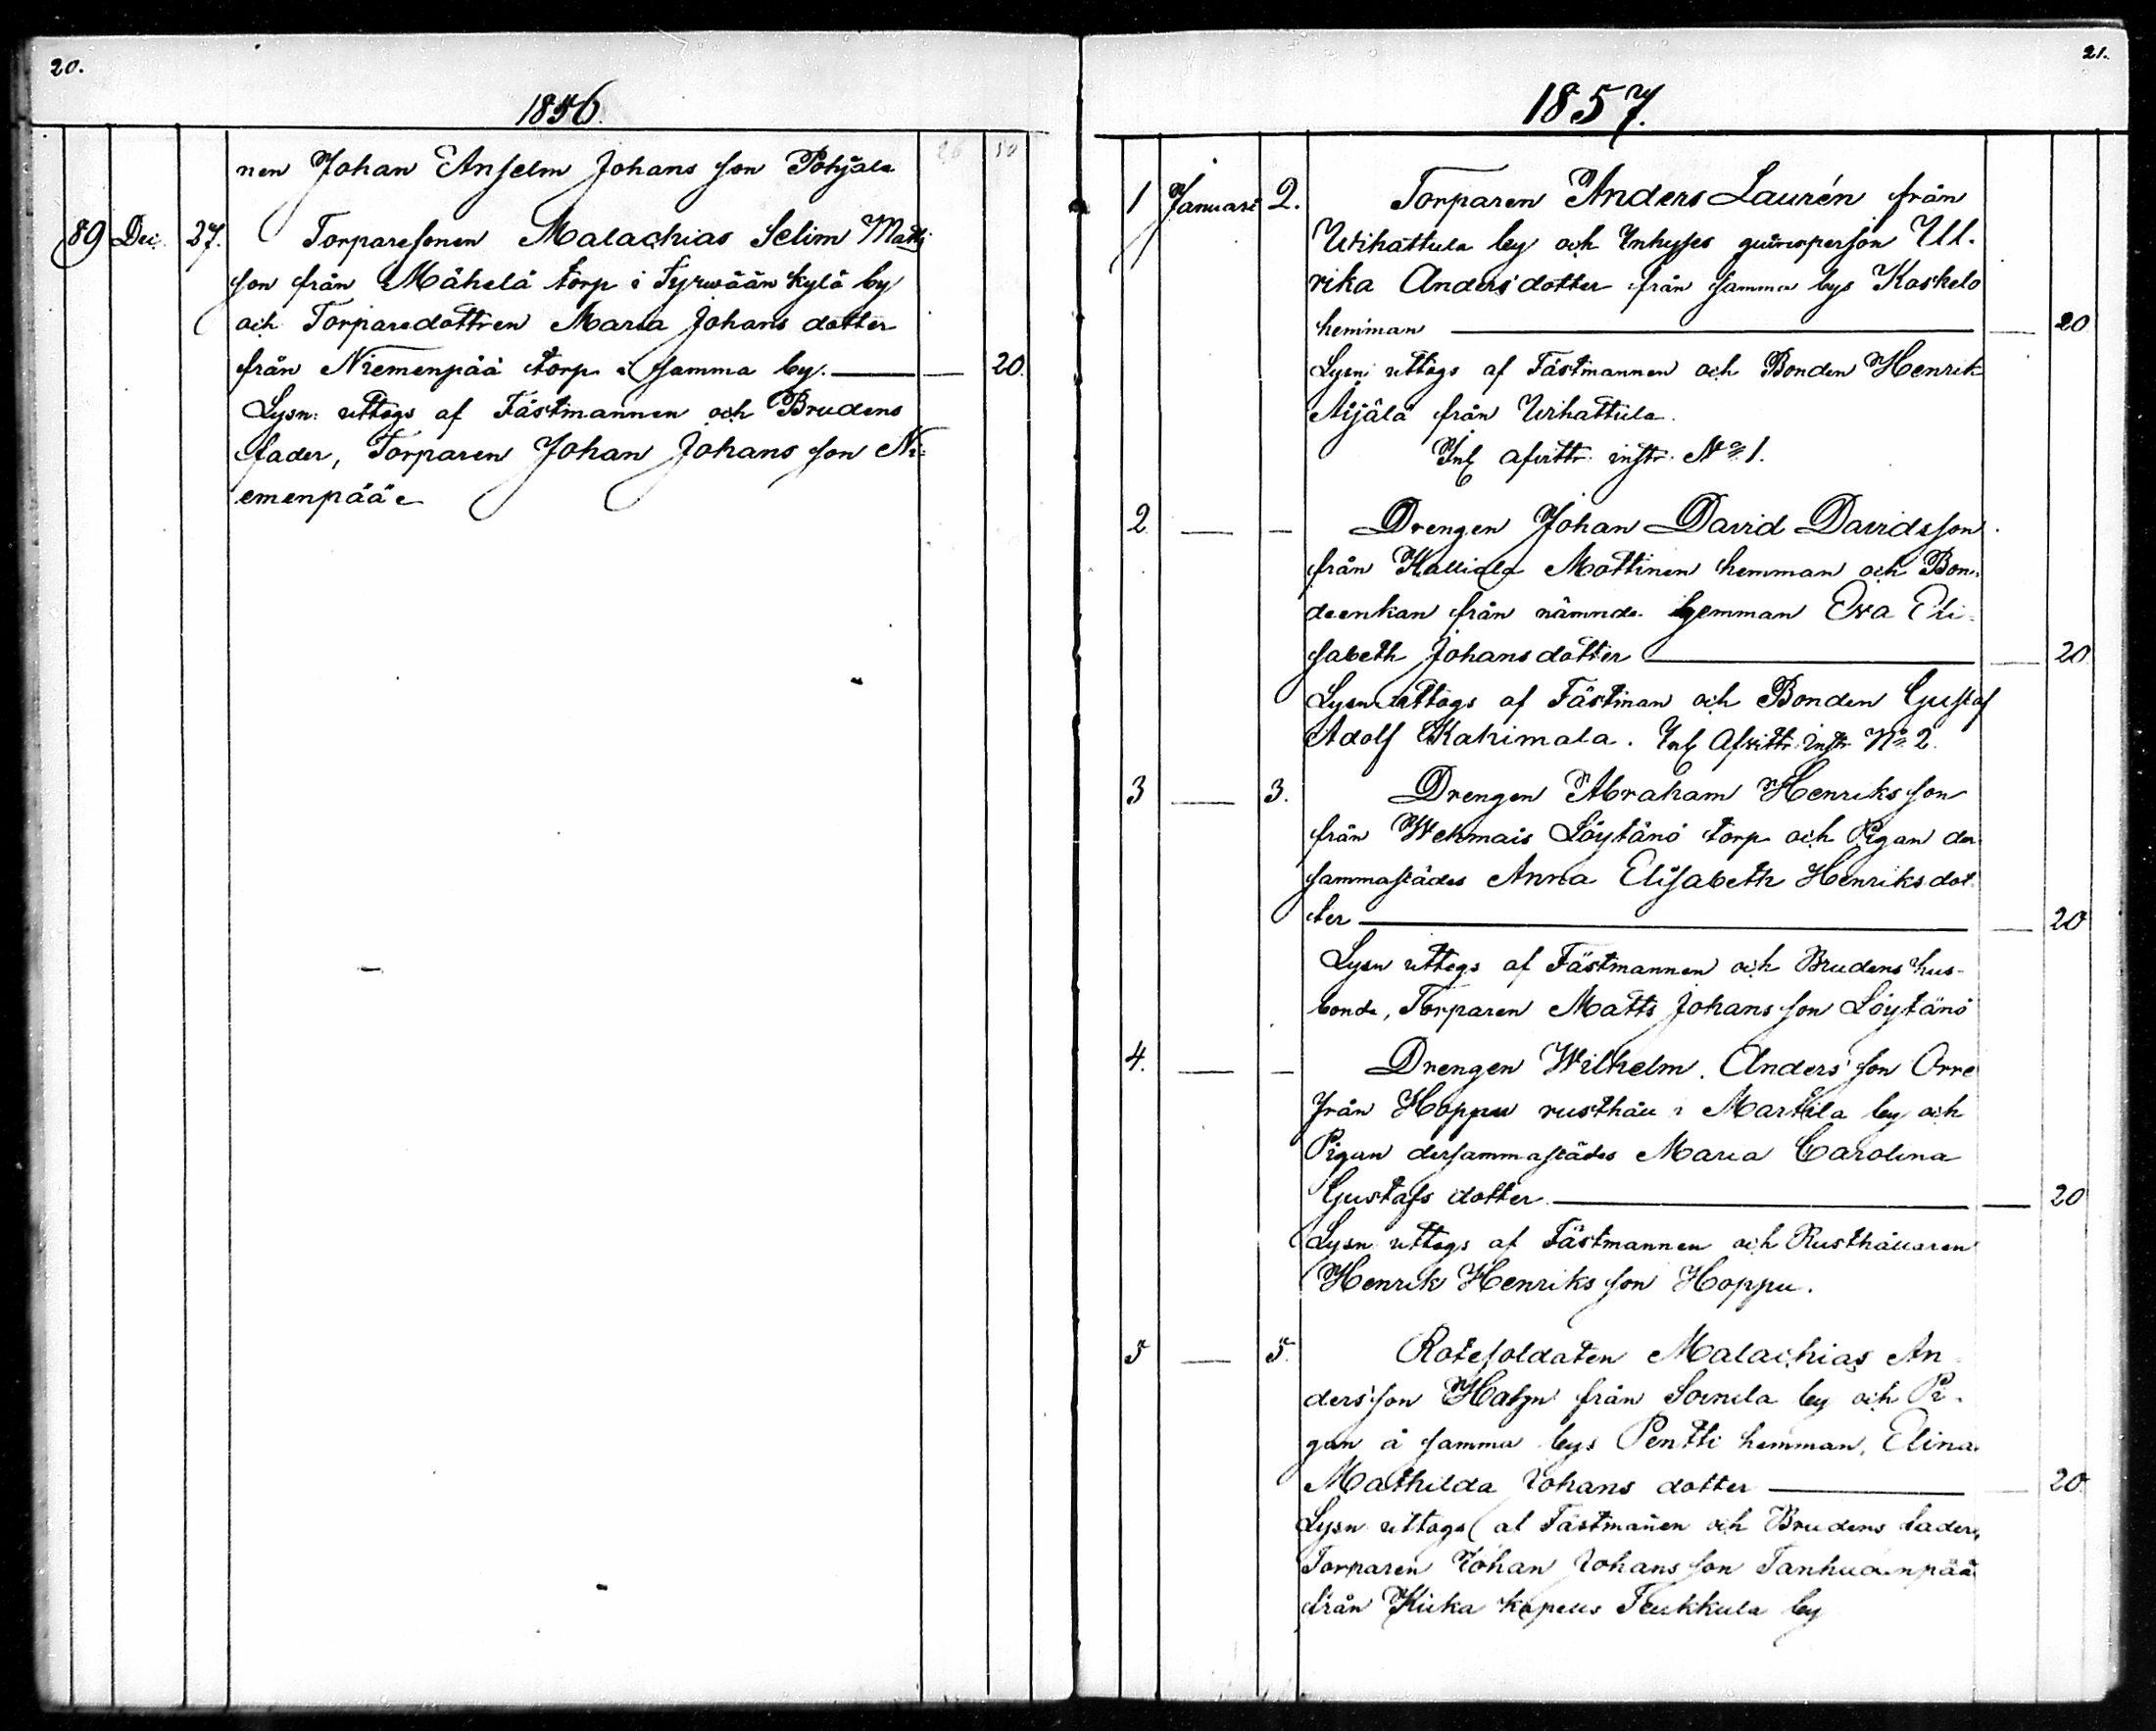 20.
1856.
26 10
nen Johan Anselm Johans son Pohjala
89 Dec. 27. Torparesonen Malachias Selim Matts
son från Mähelä torp i Tyrwään kylä by
och Torparedottren Maria Johans dotter
från Niemenpää torp i samma by. — — 20.
Lysn: uttogs af Fästmannen och Brudens
fader, Torparen Johan Johans son Ni=
emenpää
21.
1857.
1 Januari 2. Torparen Anders Laurén från
Uihattula by och Inhyses qvinsperson Ul-
rika Anders dotter från samma bys Koskelo
hemman — — 20
Lysn: uttogs af Fästmannen och Bonden Henrik
Äijälä från Uihattula.
Inl afvittr. instr. N:o 1.
2 — — Drengen Johan David Davidsson
från Kalliala Mottinen hemman och Bon-
deenkan från nämnde hemman Eva Eli-
sabeth Johansdotter — — 20
Lysn uttogs af Fästman och Bonden Gustaf
Adolf Kahimala. Inl Afvittr. instr N:o 2.
3 — 3. Drengen Abraham Henriks son
från Wehmais Löytänö torp och Pigan der
sammastädes Anna Elisabeth Henriksdot
ter — — 20
Lysn uttogs af Fästmannen och Brudens hus-
bonde, Torparen Matts Johans son Löytänö
4. — — Drengen Wilhelm Anders son Orre
från Hoppu rusthåll i Marttila by och
Pigan dersammastädes Maria Carolina
Gustafs dotter — — 20
Lysn uttogs af Fästmannen och Rusthållaren
Henrik Henriks son Hoppu.
5 — 5. Rotesoldaten Malachias An
ders son från Soinila by och Pi-
gan å samma bys Pentti hemman, Elina
Mathilda Johans dotter — — 20.
Lysn uttogs af Fästmannen och Brudens fader,
Torparen Johan Johans son Tanhuanpää
från Kiika kapells Teukkula by